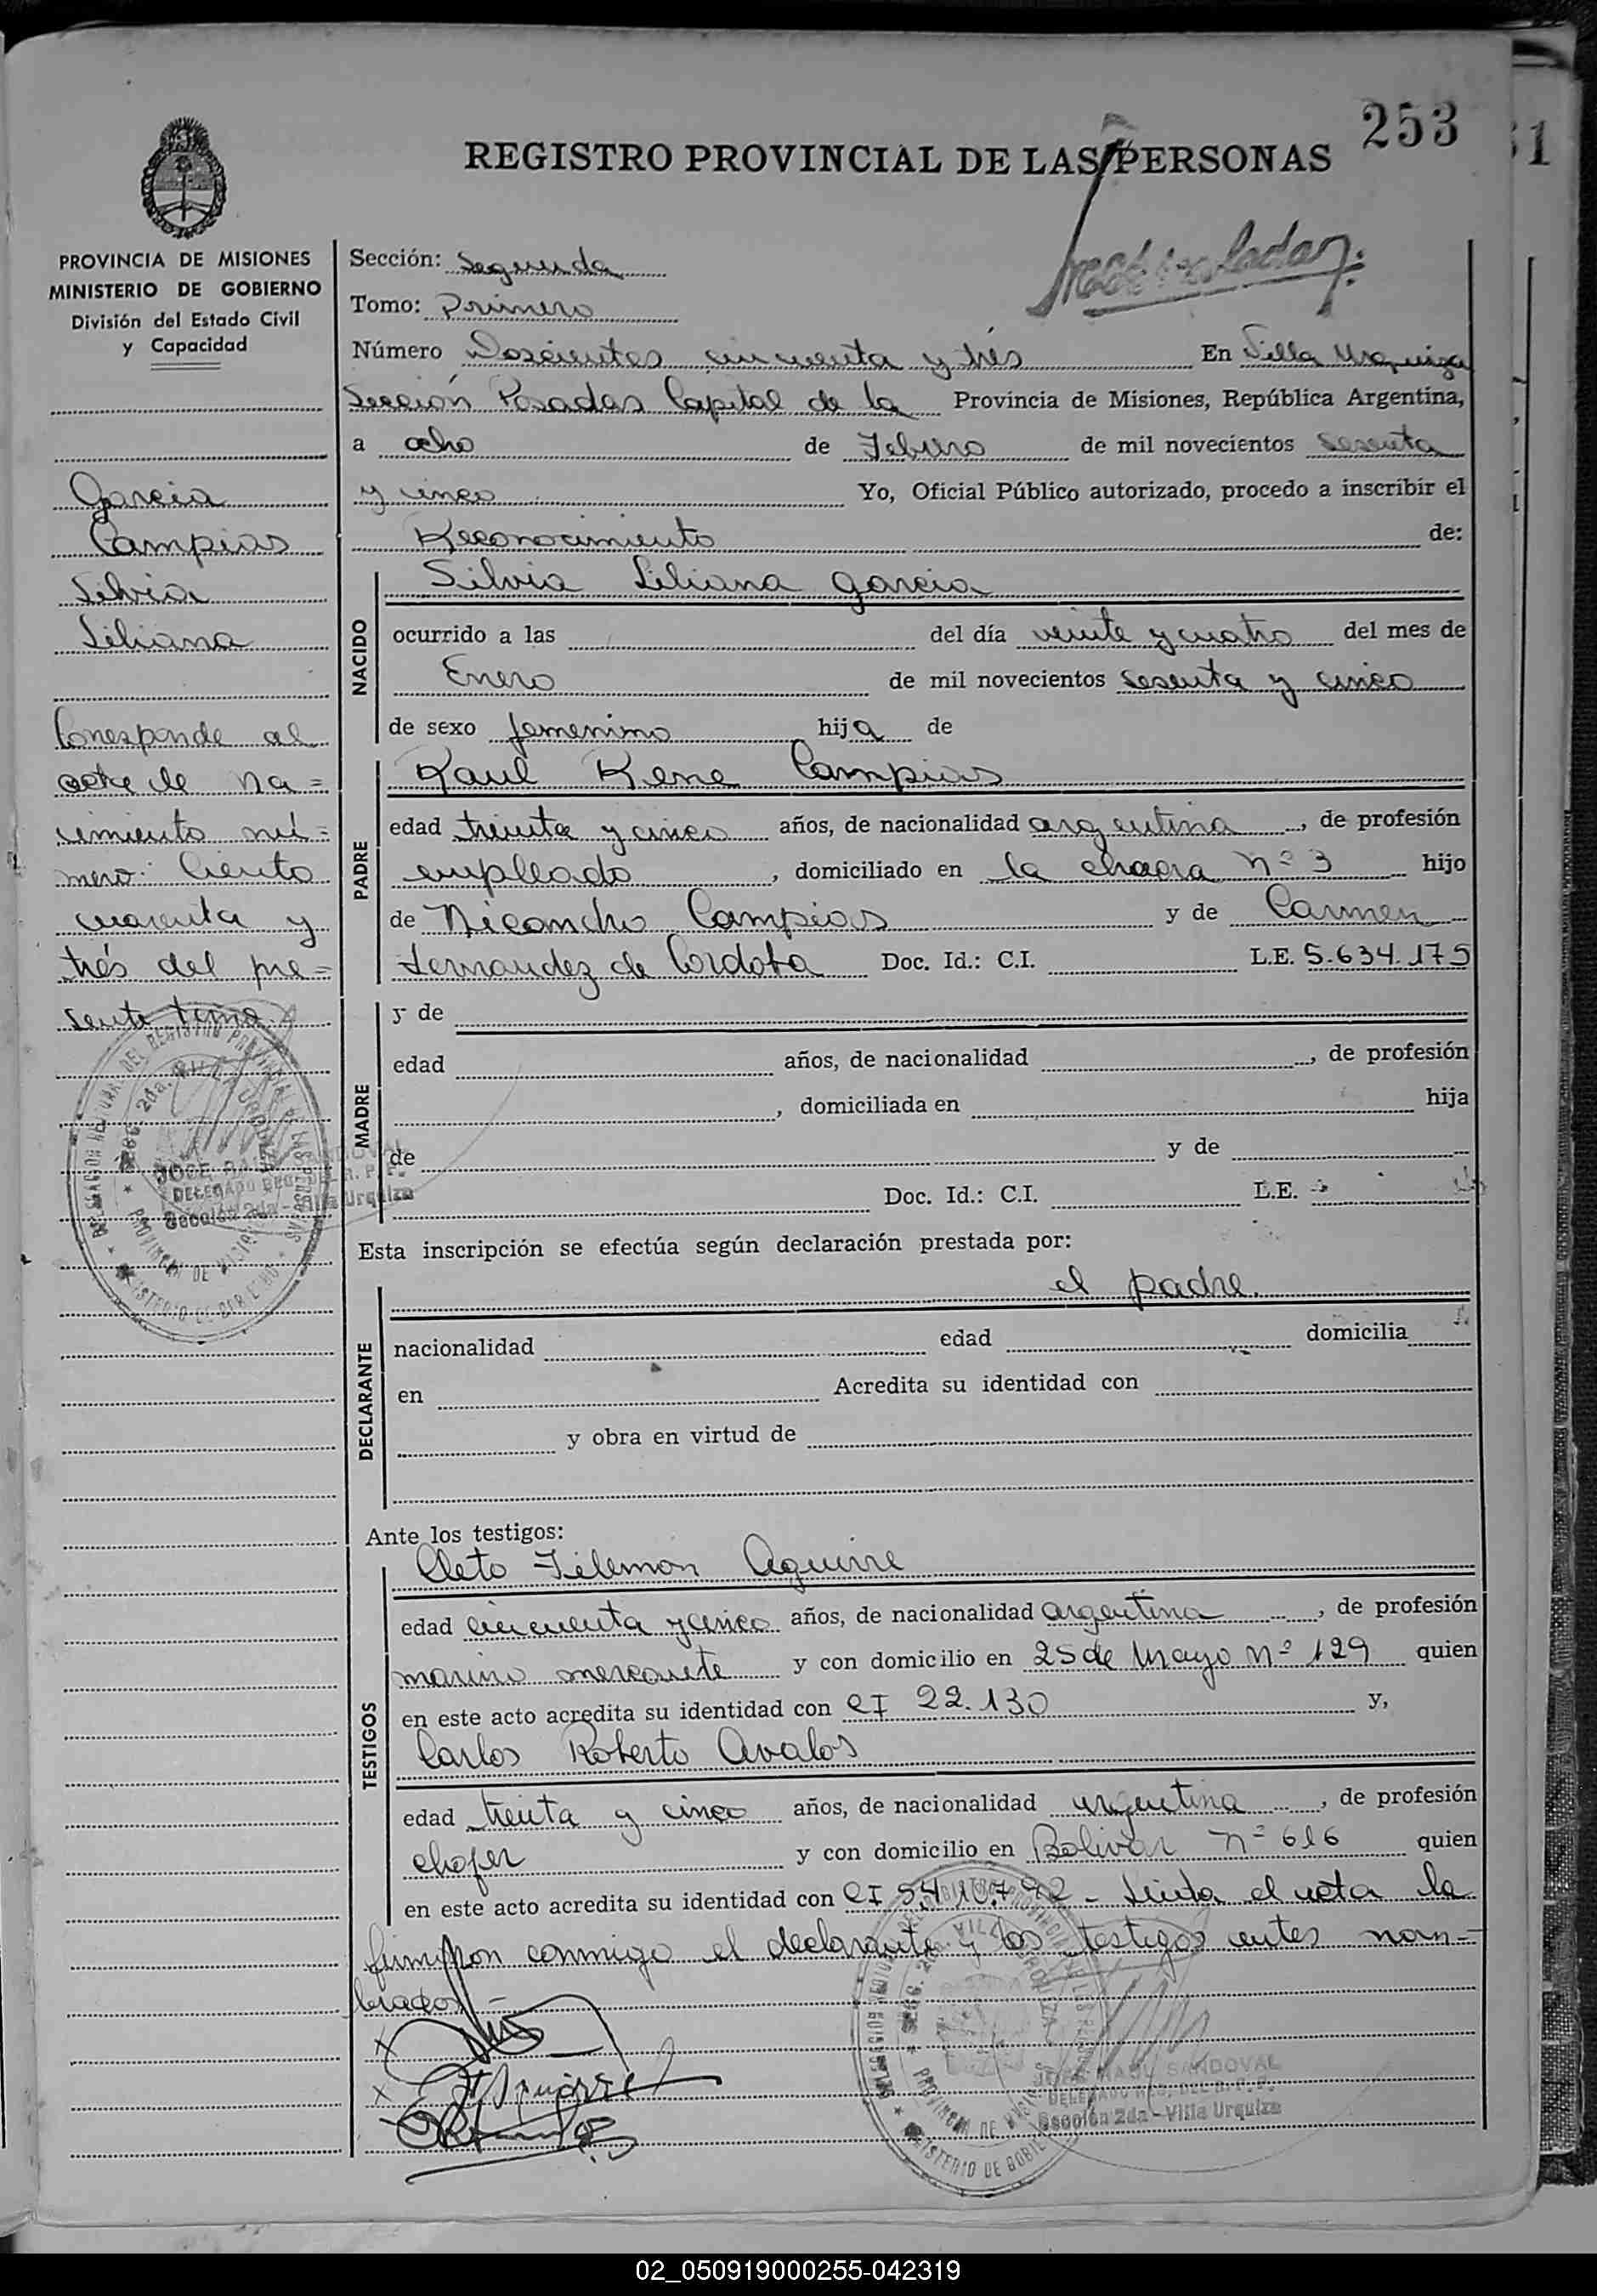 253
REGISTRO PROVINCIAL DE LAS PERSONAS
31
PROVINCIA DE MISIONES
MINISTERIO DE GOBIERNO
División del Estado Civil
y Capacidad
Garcia
Campias
Silvia
Liliana
Corresponde al
acta de na=
cimiento nú=
mero: Ciento
cuarenta y
trés del pre=
sente tomo
Sección: Segunda
Tomo: Primero
Número Doscientos cincuenta y trés En Villa Urquiza
Sección Posadas Capital de la Provincia de Misiones, República Argentina,
a ocho de Febrero de mil novecientos sesenta
y cinco Yo, Oficial Público autorizado, procedo a inscribir el
Reconocimiento de:
NACIDO
Silvia Liliana Garcia
ocurrido a las del día veinte y cuatro del mes de
Enero de mil novecientos sesenta y cinco
de sexo femenino hija de
PADRE
Raul Rene Campias
edad treinta y cinco años, de nacionalidad argentina, de profesión
empleado, domiciliado en la chacra nº 3 hijo
de Nicandro Campias y de Carmen
Fernandez de Cordoba Doc. Id.: C.I. L.E. 5.634.175
MADRE
y de
edad años, de nacionalidad , de profesión
, domiciliada en hija
de y de
Doc. Id.: C.I. L.E.
Esta inscripción se efectúa según declaración prestada por:
DECLARANTE
el padre.
nacionalidad edad domicilia
en Acredita su identidad con
y obra en virtud de
Ante los testigos:
TESTIGOS
Cleto Filemon Aguirre
edad cincuenta y cinco años, de nacionalidad argentina, de profesión
marino mercante y con domicilio en 25 de Mayo nº 129 quien
en este acto acredita su identidad con CI 22.130 y,
Carlos Roberto Avalos
edad treinta y cinco años, de nacionalidad argentina, de profesión
chofer y con domicilio en Bolivar nº 616 quien
en este acto acredita su identidad con CI Leida el acta la
firmaron conmigo el declarante y los testigos antes nom-
brados -
JOSE RAUL SANDOVAL
DELEGADO REG. DEL R. P. P.
Sección 2da - Villa Urquiza
02_050919000255-042319